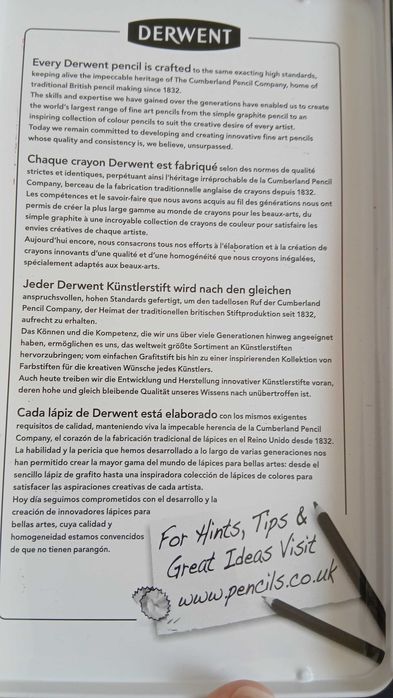 DERWENT
Every Derwent pencil is crafted to the same exacting high standards,
keeping alive the impeccable heritage of The Cumberland Pencil Company, home of
traditional British pencil making since 1832.
The skills and expertise we have gained over the generations have enabled us to create
the world's largest range of fine art pencils from the simple graphite pencil to an
inspiring collection of colour pencils to suit the creative desire of every artist.
Today we remain committed to developing and creating innovative fine art pencils
whose quality and consistency is, we believe, unsurpassed.
Chaque crayon Derwent est fabriqué selon des normes de qualité
strictes et identiques, perpétuant ainsi l'héritage irréprochable de la Cumberland Pencil
Company, berceau de la fabrication traditionnelle anglaise de crayons depuis 1832.
Les compétences et le savoir-faire que nous avons acquis au fil des générations nous ont
permis de créer la plus large gamme au monde de crayons pour les beaux-arts, du
simple graphite à une incroyable collection de crayons de couleur pour satisfaire les
envies créatives de chaque artiste.
Aujourd'hui encore, nous consacrons tous nos efforts à l'élaboration et à la création de
crayons innovants d'une qualité et d'une homogénéité que nous croyons inégalées,
spécialement adaptés aux beaux-arts.
Jeder Derwent Künstlerstift wird nach den gleichen
anspruchsvollen, hohen Standards gefertigt, um den tadellosen Ruf der Cumberland
Pencil Company, der Heimat der traditionellen britischen Stiftproduktion seit 1832,
aufrecht zu erhalten.
Das Können und die Kompetenz, die wir uns über viele Generationen hinweg angeeignet
haben, ermöglichen es uns, das weltweit größte Sortiment an Künstlerstiften
hervorzubringen; vom einfachen Grafitstift bis hin zu einer inspirierenden Kollektion von
Farbstiften für die kreativen Wünsche jedes Künstlers.
Auch heute treiben wir die Entwicklung und Herstellung innovativer Künstlerstifte voran,
deren hohe und gleich bleibende Qualität unseres Wissens nach unübertroffen ist.
Cada lápiz de Derwent está elaborado con los mismos exigentes
requisitos de calidad, manteniendo viva la impecable herencia de la Cumberland Pencil
Company, el corazón de la fabricación tradicional de lápices en el Reino Unido desde 1832.
La habilidad y la pericia que hemos desarrollado a lo largo de varias generaciones nos
han permitido crear la mayor gama del mundo de lápices para bellas artes: desde el
sencillo lápiz de grafito hasta una inspiradora colección de lápices de colores para
satisfacer las aspiraciones creativas de cada artista.
Hoy día seguimos comprometidos con el desarrollo y la
creación de innovadores lápices para
bellas artes, cuya calidad y
homogeneidad estamos convencidos
de que no tienen parangón.
For Hints, Tips &
Great Ideas Visit
www.pencils.co.uk